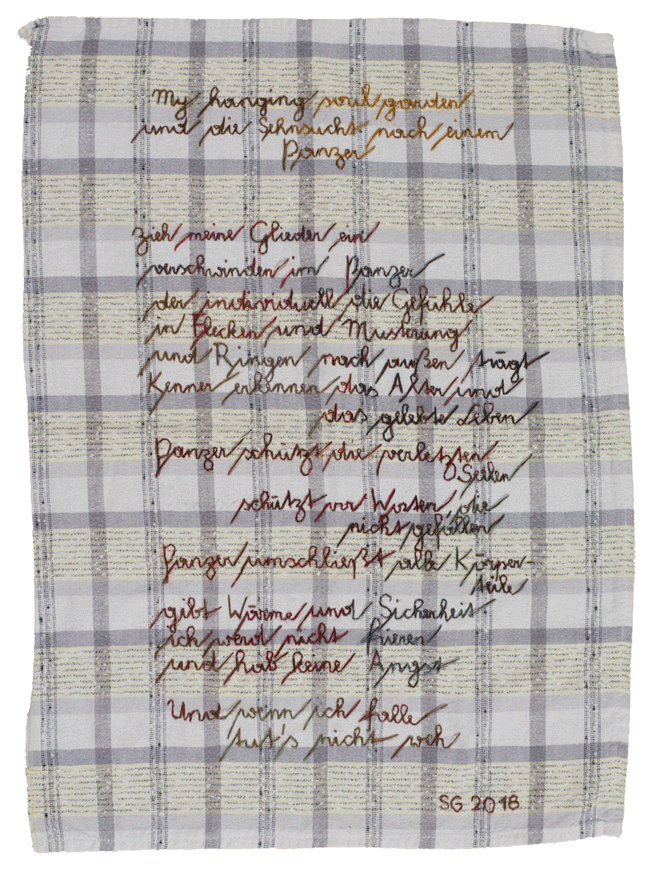 My hanging soul garden
und die Sehnsucht nach einem
Panzer
Zieh meine Glieder ein
verschwinden im Panzer
der individuell die Gefühle
in Flecken und Musterung
und Ringen nach außen trägt
Kenner erkennen das Alter und
das gelebte Leben
Panzer schützt die verletzten
Seiten
schützt vor Worten die
nicht gefallen
Panzer umschließt alle Körper-
teile
gibt Wärme und Sicherheit
ich werd nicht frieren
und hab keine Angst
Und wenn ich falle
tut's nicht weh
SG 2018